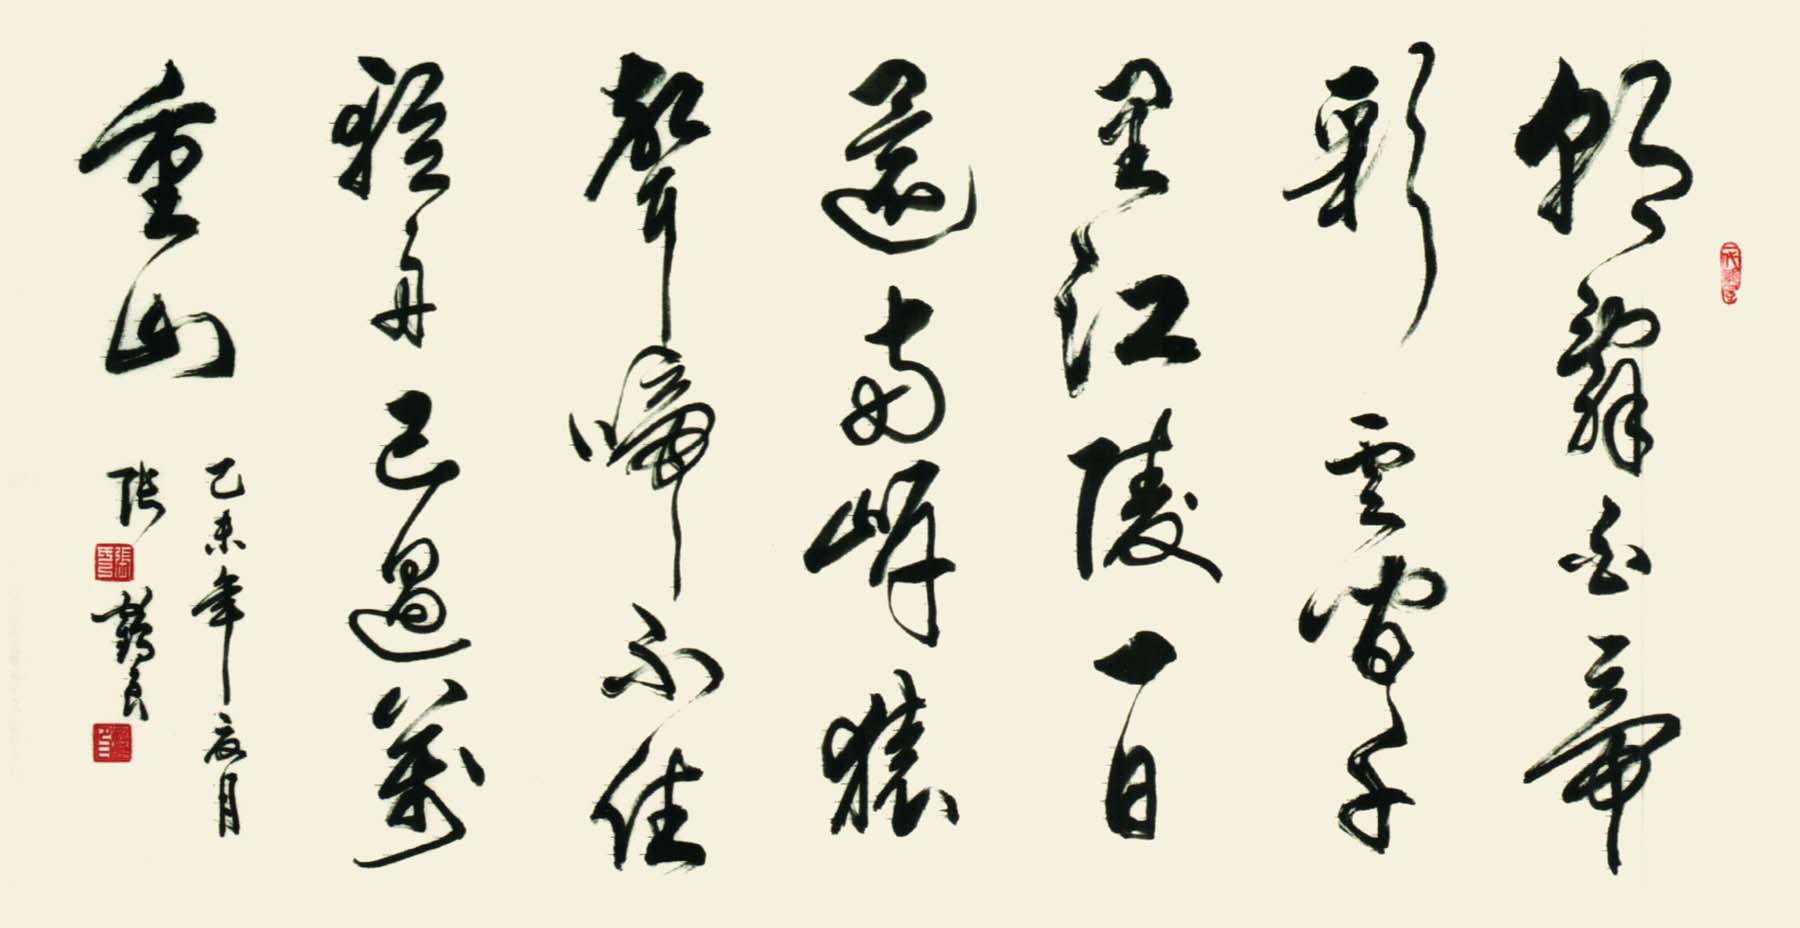 朝辭白帝
彩雲間千
里江陵一日
還兩岸猿
聲啼不住
輕舟已過萬
重山
乙未年夏月
張